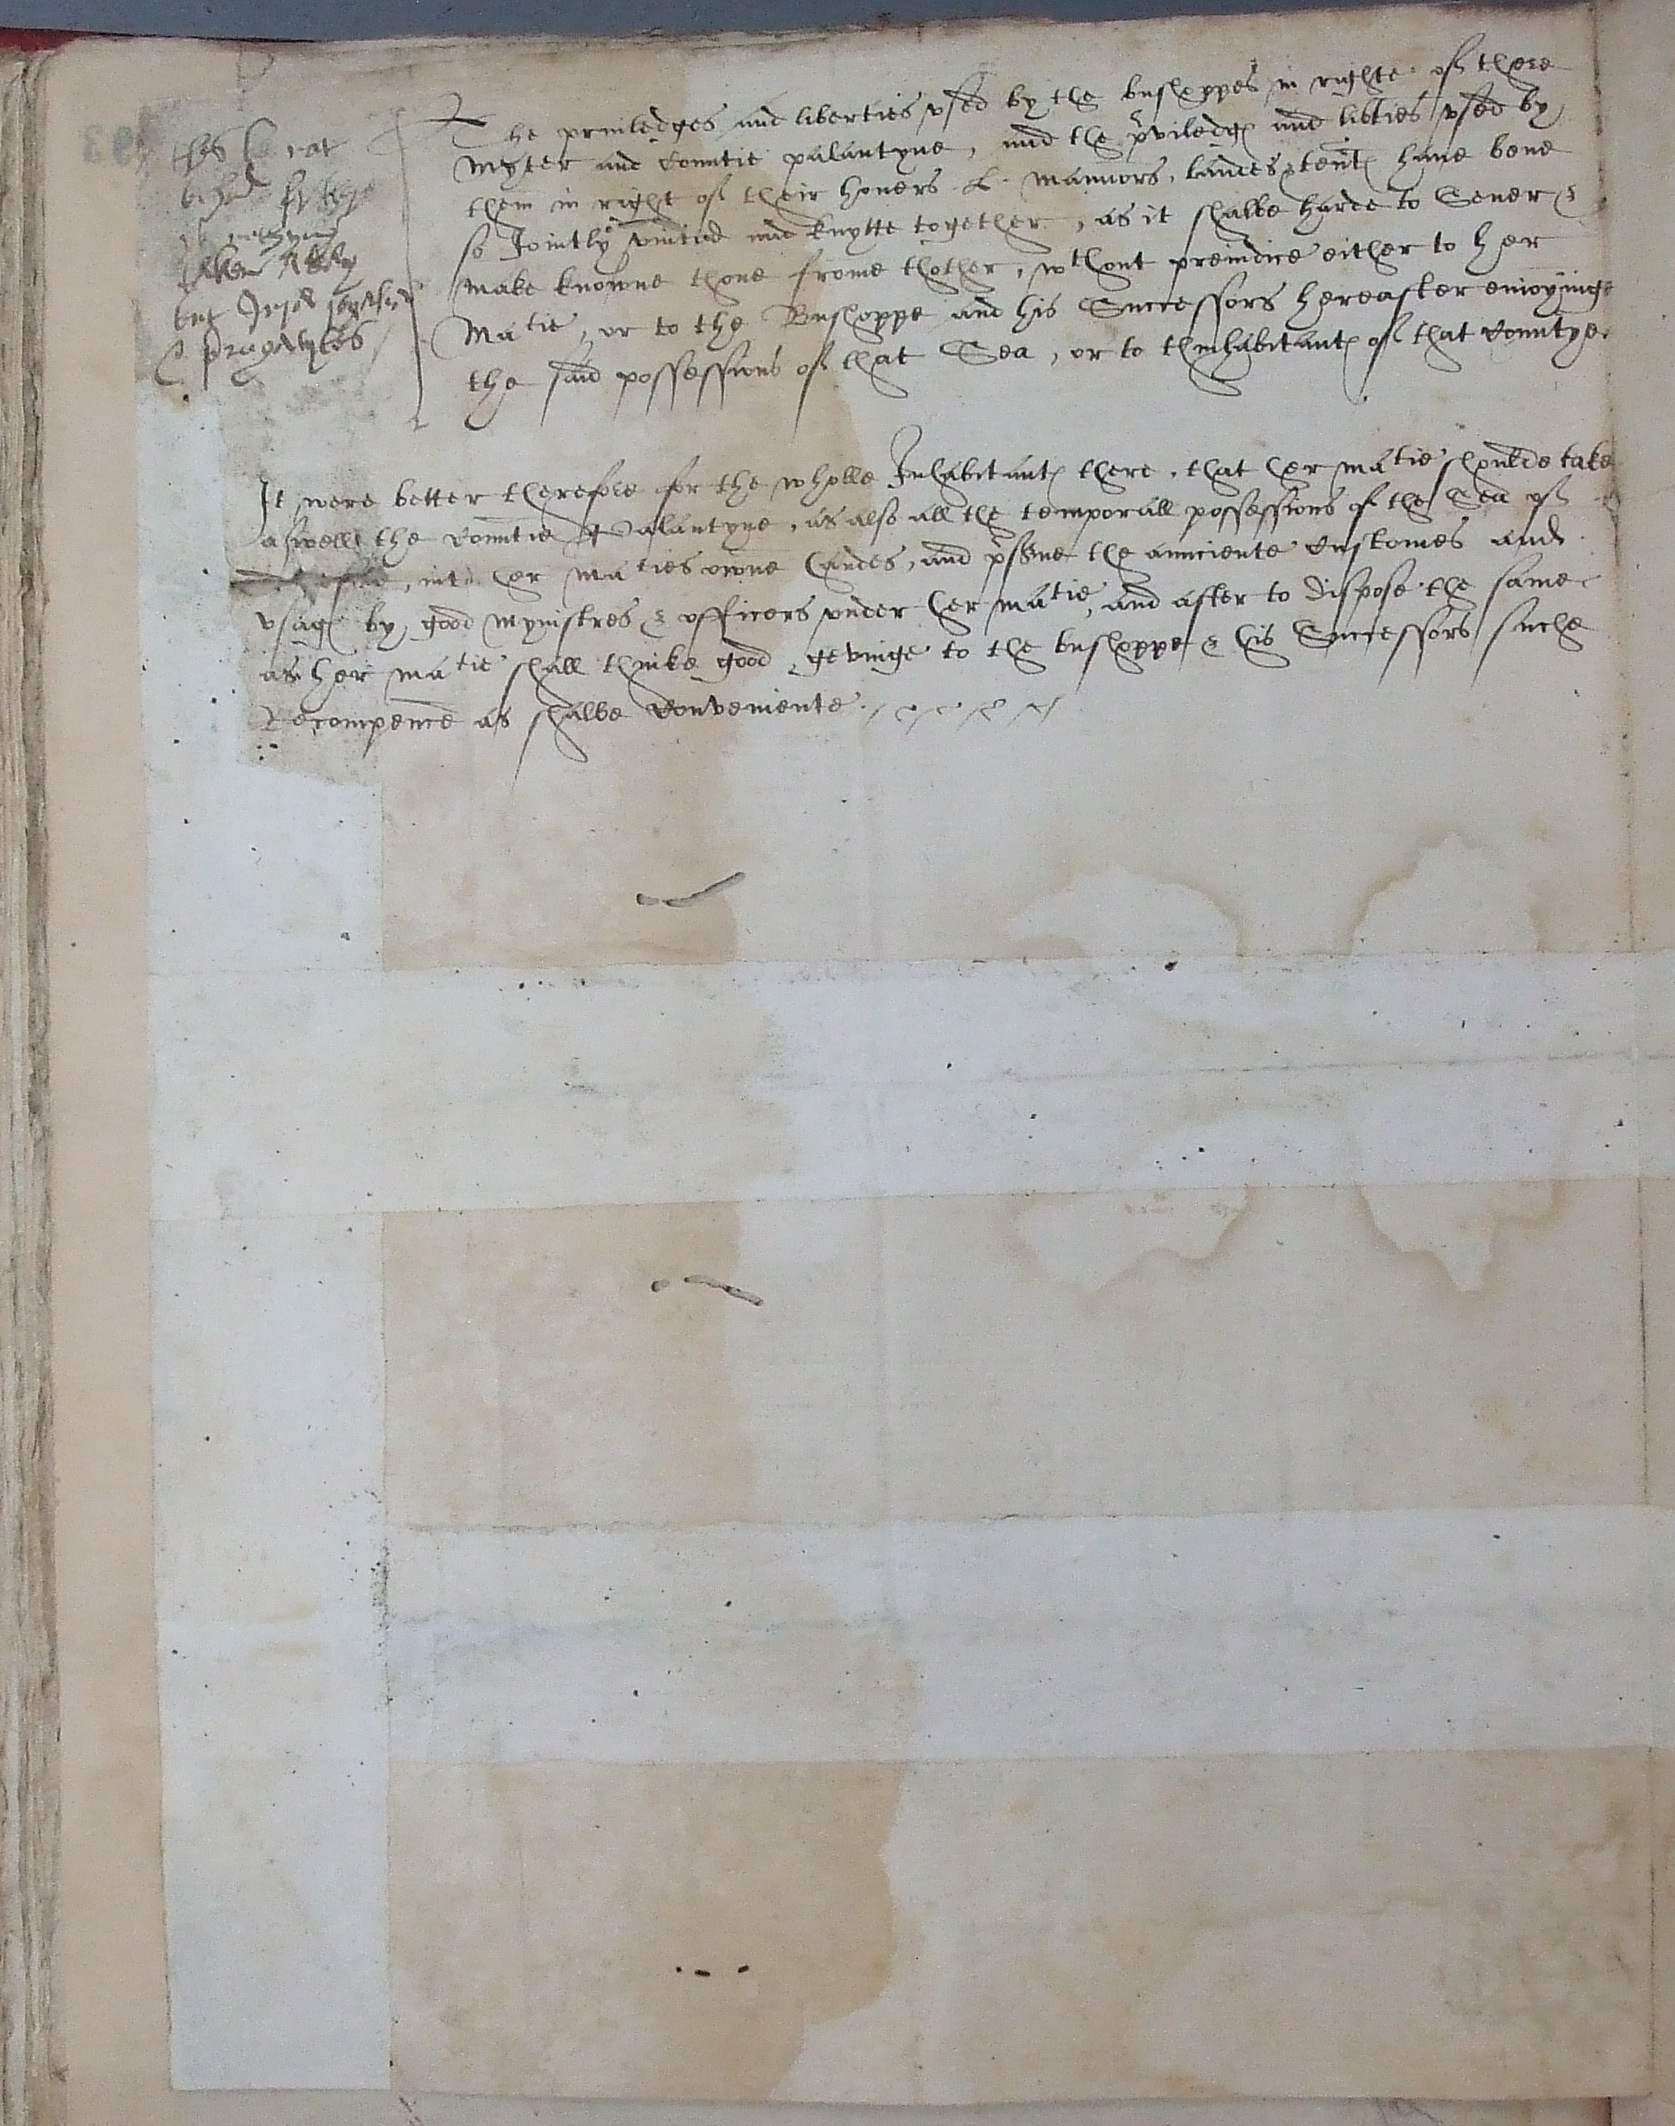 The priuiledges and liberties vsed by the busshoppes in righte of there
Myter and Countie palantyne, and the pviledg and libties vsed by
them in right of their honers L. mannors, landes & tent haue bene
so Jointly vnitid and knytte together, as it shalbe harde to Sever &
make knowne thone frome thother, wthout preiudice either to her
Matie, or to the Busshoppe and his Successors hereafter enioyinge
the said possessions of that Sea, or to thinhabitant of that Countye.
this
but
prerogatyves
It were better therefore for the wholle Inhabitant there, that her matie shoulde take
aswell the Countie Palantyne, as also all the temporall possessions of the Sea of
her maties owne handes, and pserve the aunciente Customes and
vsag by good mynistres & officers vnder her matie, and after to dispose the same
as her matie shall thinke good, gevinge to the busshoppe & his Successors suche
Recompence as shalbe Conveniente